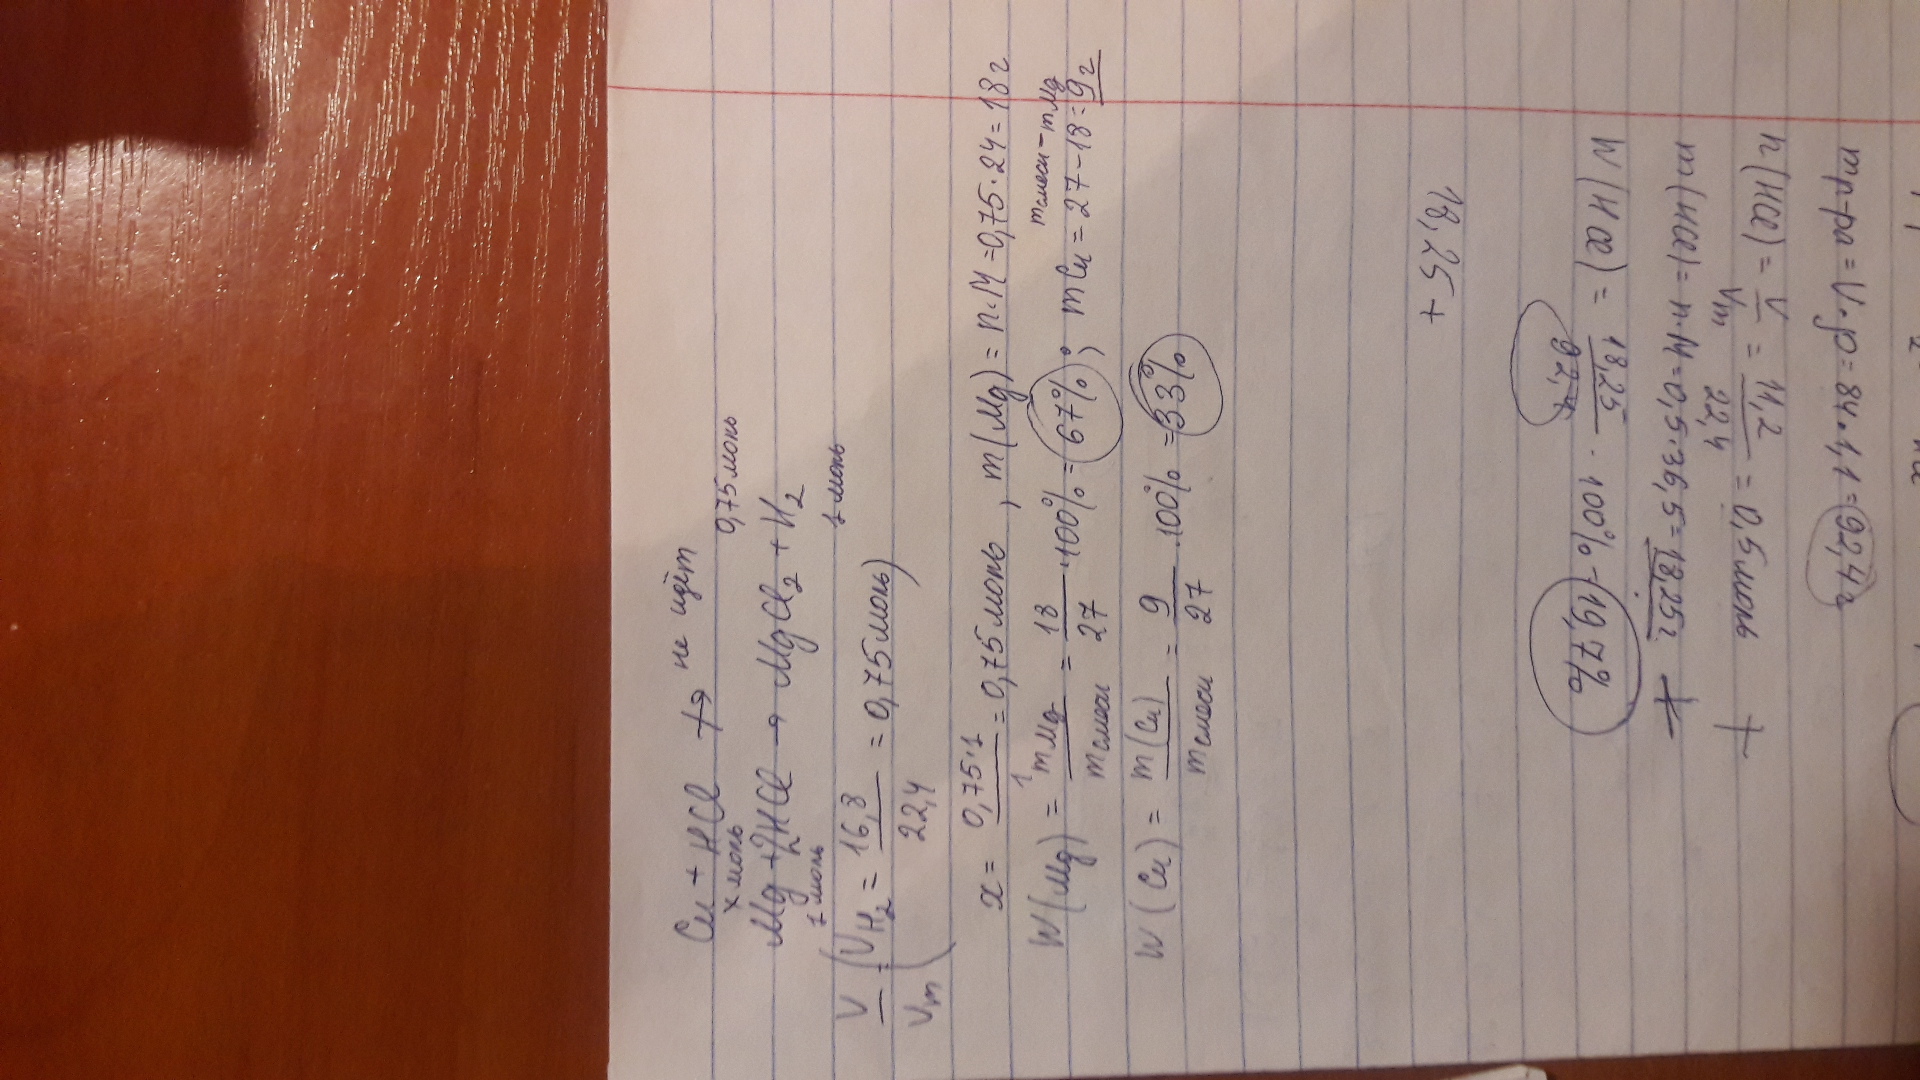 Cu + HCl ↛ не идёт
x моль 0,75 моль
Mg + 2HCl → MgCl2 + H2
1 моль 1 моль
V/Vm = (VH2 = 16,8/22,4 = 0,75 моль)
x = 0,75·1/1 = 0,75 моль, m(Mg) = n·M = 0,75·24 = 18 г
W(Mg) = mMg/mсмеси = 18/27 · 100% = 67%; mCu = 27-18 = 9 г
mсмеси - mMg
W(Cu) = m(Cu)/mсмеси = 9/27 · 100% = 33%
mр-ра = V·ρ = 84·1,1 = 92,4 г
n(HCl) = V/Vm = 11,2/22,4 = 0,5 моль
m(HCl) = n·M = 0,5·36,5 = 18,25 г
W(HCl) = 18,25/92,4 · 100% = 19,7%
18,25 +